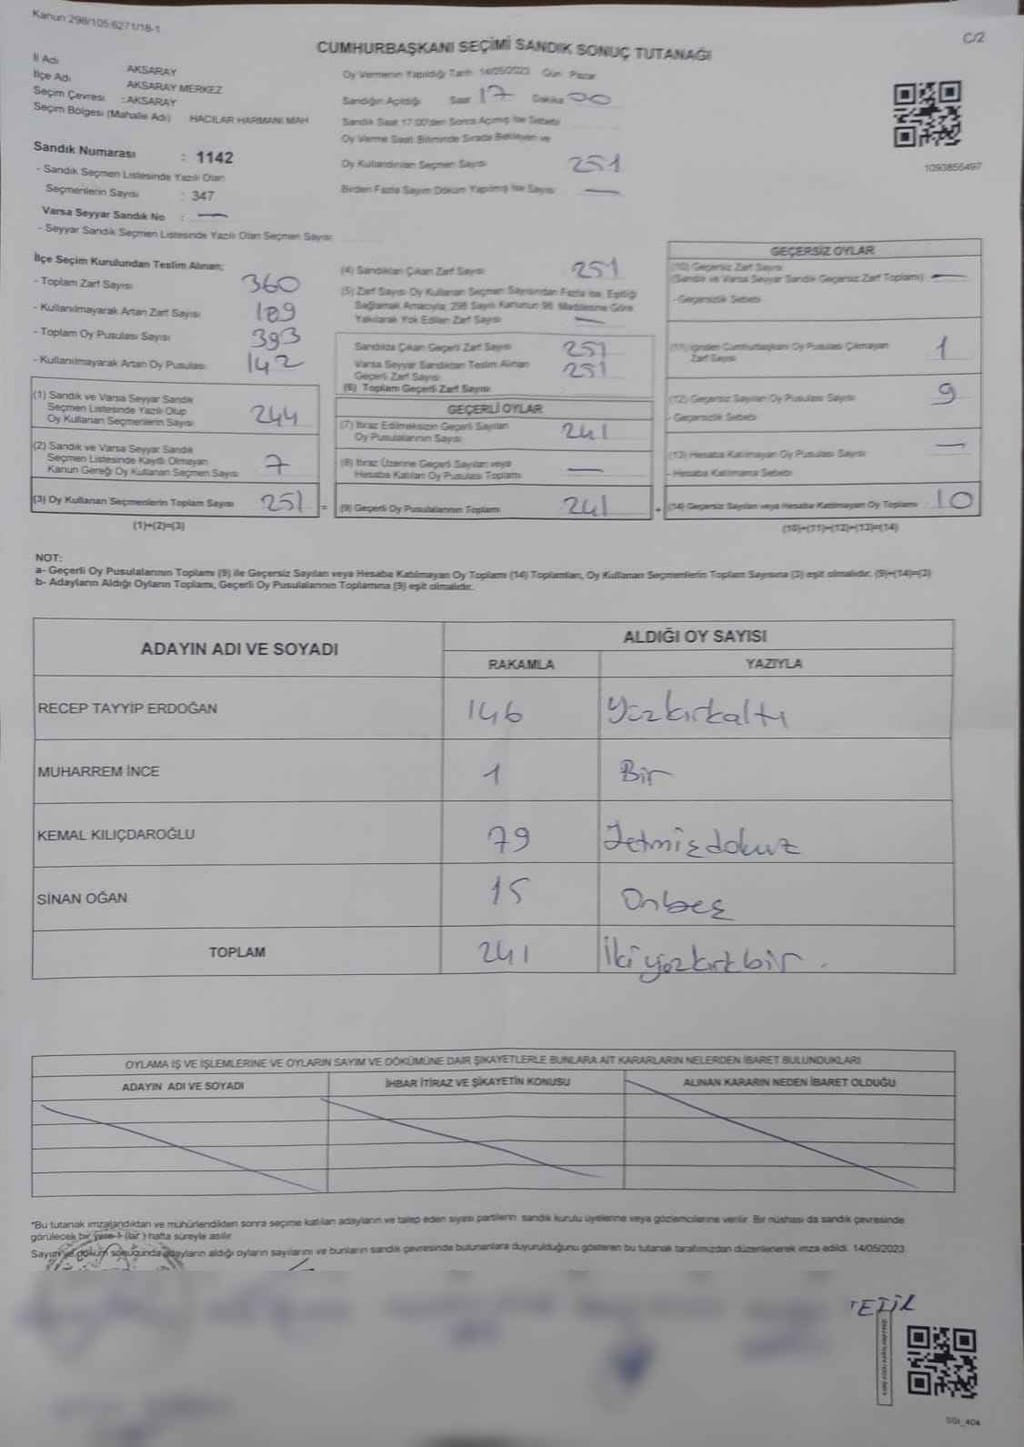 Kanun 298/105-6271/18-1
C/2
CUMHURBAŞKANI SEÇİMİ SANDIK SONUÇ TUTANAĞI
İl Adı AKSARAY
İlçe Adı AKSARAY MERKEZ
Seçim Çevresi : AKSARAY
Seçim Bölgesi (Mahalle Adı) HACILAR HARMANI MAH
Sandık Numarası : 1142
- Sandık Seçmen Listesinde Yazılı Olan
Seçmenlerin Sayısı : 347
Varsa Seyyar Sandık No : —
- Seyyar Sandık Seçmen Listesinde Yazılı Olan Seçmen Sayısı
Oy Vermenin Yapıldığı Tarih 14/05/2023 Gün Pazar
Sandığın Açıldığı Saat 17 Dakika 00
Sandık Saat 17:00'den Sonra Açılmış İse Sebebi
Oy Verme Saati Bitiminde Sırada Bekleyen ve
Oy Kullandırılan Seçmen Sayısı 251
Birden Fazla Sayım Döküm Yapılmış İse Sayısı —
1090855497
İlçe Seçim Kurulundan Teslim Alınan;
- Toplam Zarf Sayısı 360
- Kullanılmayarak Artan Zarf Sayısı 109
- Toplam Oy Pusulası Sayısı 393
- Kullanılmayarak Artan Oy Pusulası 142
(1) Sandık ve Varsa Seyyar Sandık
Seçmen Listesinde Yazılı Olup
Oy Kullanan Seçmenlerin Sayısı 244
(2) Sandık ve Varsa Seyyar Sandık
Seçmen Listesinde Kayıtlı Olmayan
Kanun Gereği Oy Kullanan Seçmen Sayısı 7
(3) Oy Kullanan Seçmenlerin Toplam Sayısı 251 =
(1)+(2)=(3)
(4) Sandıktan Çıkan Zarf Sayısı 251
(5) Zarf Sayısı Oy Kullanan Seçmen Sayısından Fazla ise, Eşitliği
Sağlamak Amacıyla, 298 Sayılı Kanunun 98. Maddesine Göre
Yakılarak Yok Edilen Zarf Sayısı —
Sandıkta Çıkan Geçerli Zarf Sayısı 251
Varsa Seyyar Sandıktan Teslim Alınan
Geçerli Zarf Sayısı 251
(6) Toplam Geçerli Zarf Sayısı
GEÇERLİ OYLAR
(7) İtiraz Edilmeksizin Geçerli Sayılan
Oy Pusulalarının Sayısı 241
(8) İtiraz Üzerine Geçerli Sayılan veya
Hesaba Katılan Oy Pusulası Toplamı —
(9) Geçerli Oy Pusulalarının Toplamı 241 +
GEÇERSİZ OYLAR
(10) Geçersiz Zarf Sayısı
(Sandık ve Varsa Seyyar Sandık Geçersiz Zarf Toplamı) —
- Geçersizlik Sebebi
(11) İçinden Cumhurbaşkanı Oy Pusulası Çıkmayan
Zarf Sayısı 1
(12) Geçersiz Sayılan Oy Pusulası Sayısı 9
- Geçersizlik Sebebi
(13) Hesaba Katılmayan Oy Pusulası Sayısı —
- Hesaba Katılmama Sebebi
(14) Geçersiz Sayılan veya Hesaba Katılmayan Oy Toplamı 10
(10)+(11)+(12)+(13)=(14)
NOT:
a- Geçerli Oy Pusulalarının Toplamı (9) ile Geçersiz Sayılan veya Hesaba Katılmayan Oy Toplamı (14) Toplamları, Oy Kullanan Seçmenlerin Toplam Sayısına (3) eşit olmalıdır. (9)+(14)=(3)
b- Adayların Aldığı Oyların Toplamı, Geçerli Oy Pusulalarının Toplamına (9) eşit olmalıdır.
ADAYIN ADI VE SOYADI
ALDIĞI OY SAYISI
RAKAMLA YAZIYLA
RECEP TAYYİP ERDOĞAN 146 Yüzkırkaltı
MUHARREM İNCE 1 Bir
KEMAL KILIÇDAROĞLU 79 Yetmişdokuz
SİNAN OĞAN 15 Onbeş
TOPLAM 241 İkiyüzkırkbir.
OYLAMA İŞ VE İŞLEMLERİNE VE OYLARIN SAYIM VE DÖKÜMÜNE DAİR ŞİKAYETLERLE BUNLARA AİT KARARLARIN NELERDEN İBARET BULUNDUKLARI
ADAYIN ADI VE SOYADI
İHBAR İTİRAZ VE ŞİKAYETİN KONUSU
ALINAN KARARIN NEDEN İBARET OLDUĞU
*Bu tutanak imzalandıktan ve mühürlendikten sonra seçime katılan adayların ve talep eden siyasi partilerin sandık kurulu üyelerine veya gözlemcilerine verilir. Bir nüshası da sandık çevresinde
görülecek bir yere 1 (bir) hafta süreyle asılır.
Sayım ve döküm sonucunda adayların aldığı oyların sayılarını ve bunların sandık çevresinde bulunanlara duyurulduğunu gösteren bu tutanak tarafımızdan düzenlenerek imza edildi. 14/05/2023
SGI_404